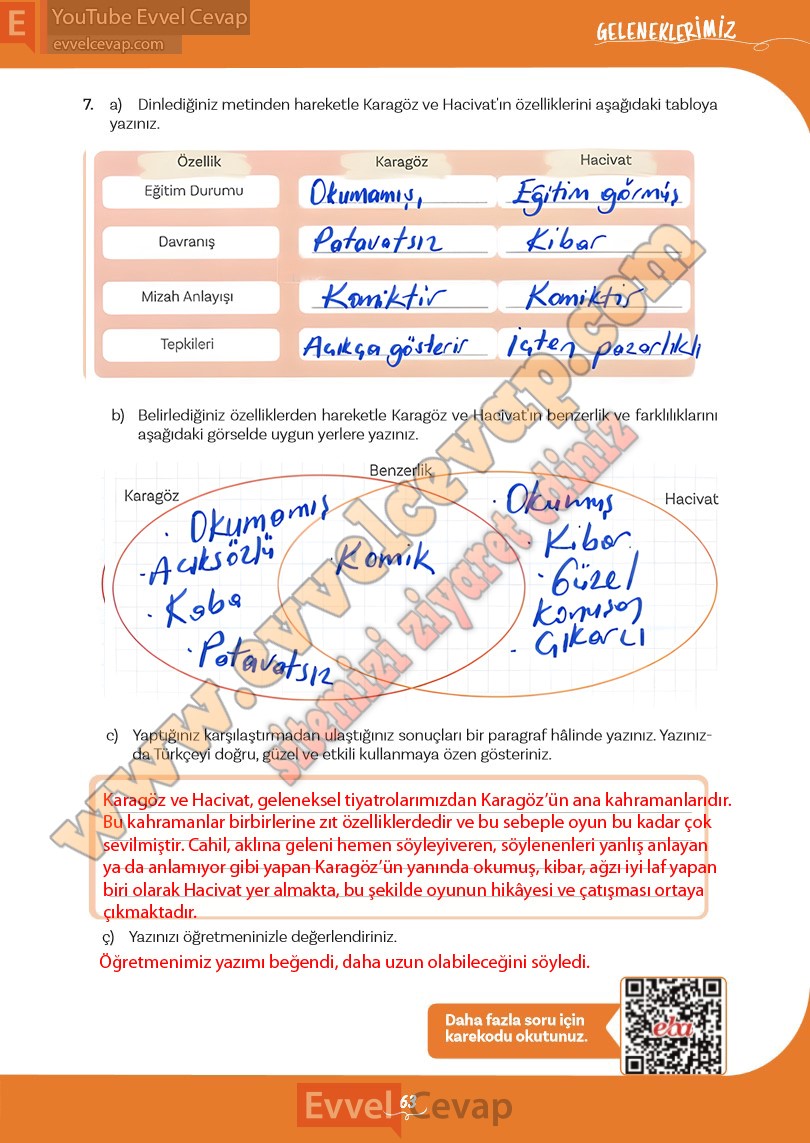 E
YouTube Evvel Cevap
evvelcevap.com
GELENEKLERİMİZ
7. a) Dinlediğiniz metinden hareketle Karagöz ve Hacivat'ın özelliklerini aşağıdaki tabloya
yazınız.
Özellik Karagöz Hacivat
Eğitim Durumu Okumamış, Eğitim görmüş
Davranış Patavatsız Kibar
Mizah Anlayışı Komiktir Komiktir
Tepkileri Açıkça gösterir İçten pazarlıklı
b) Belirlediğiniz özelliklerden hareketle Karagöz ve Hacivat'ın benzerlik ve farklılıklarını
aşağıdaki görselde uygun yerlere yazınız.
Benzerlik
Karagöz
Hacivat
· Okumamış
· Açıksözlü
· Kaba
· Patavatsız
· Komik
· Okumuş
· Kibar
· Güzel
konuşan
· Çıkarcı
www.evvelcevap.com
sitemizi ziyaret ediniz
c) Yaptığınız karşılaştırmadan ulaştığınız sonuçları bir paragraf hâlinde yazınız. Yazınız-
da Türkçeyi doğru, güzel ve etkili kullanmaya özen gösteriniz.
Karagöz ve Hacivat, geleneksel tiyatrolarımızdan Karagöz'ün ana kahramanlarıdır.
Bu kahramanlar birbirlerine zıt özelliklerdedir ve bu sebeple oyun bu kadar çok
sevilmiştir. Cahil, aklına geleni hemen söyleyiveren, söylenenleri yanlış anlayan
ya da anlamıyor gibi yapan Karagöz'ün yanında okumuş, kibar, ağzı iyi laf yapan
biri olarak Hacivat yer almakta, bu şekilde oyunun hikâyesi ve çatışması ortaya
çıkmaktadır.
ç) Yazınızı öğretmeninizle değerlendiriniz.
Öğretmenimiz yazımı beğendi, daha uzun olabileceğini söyledi.
Daha fazla soru için
karekodu okutunuz.
eba
63
Evvel Cevap